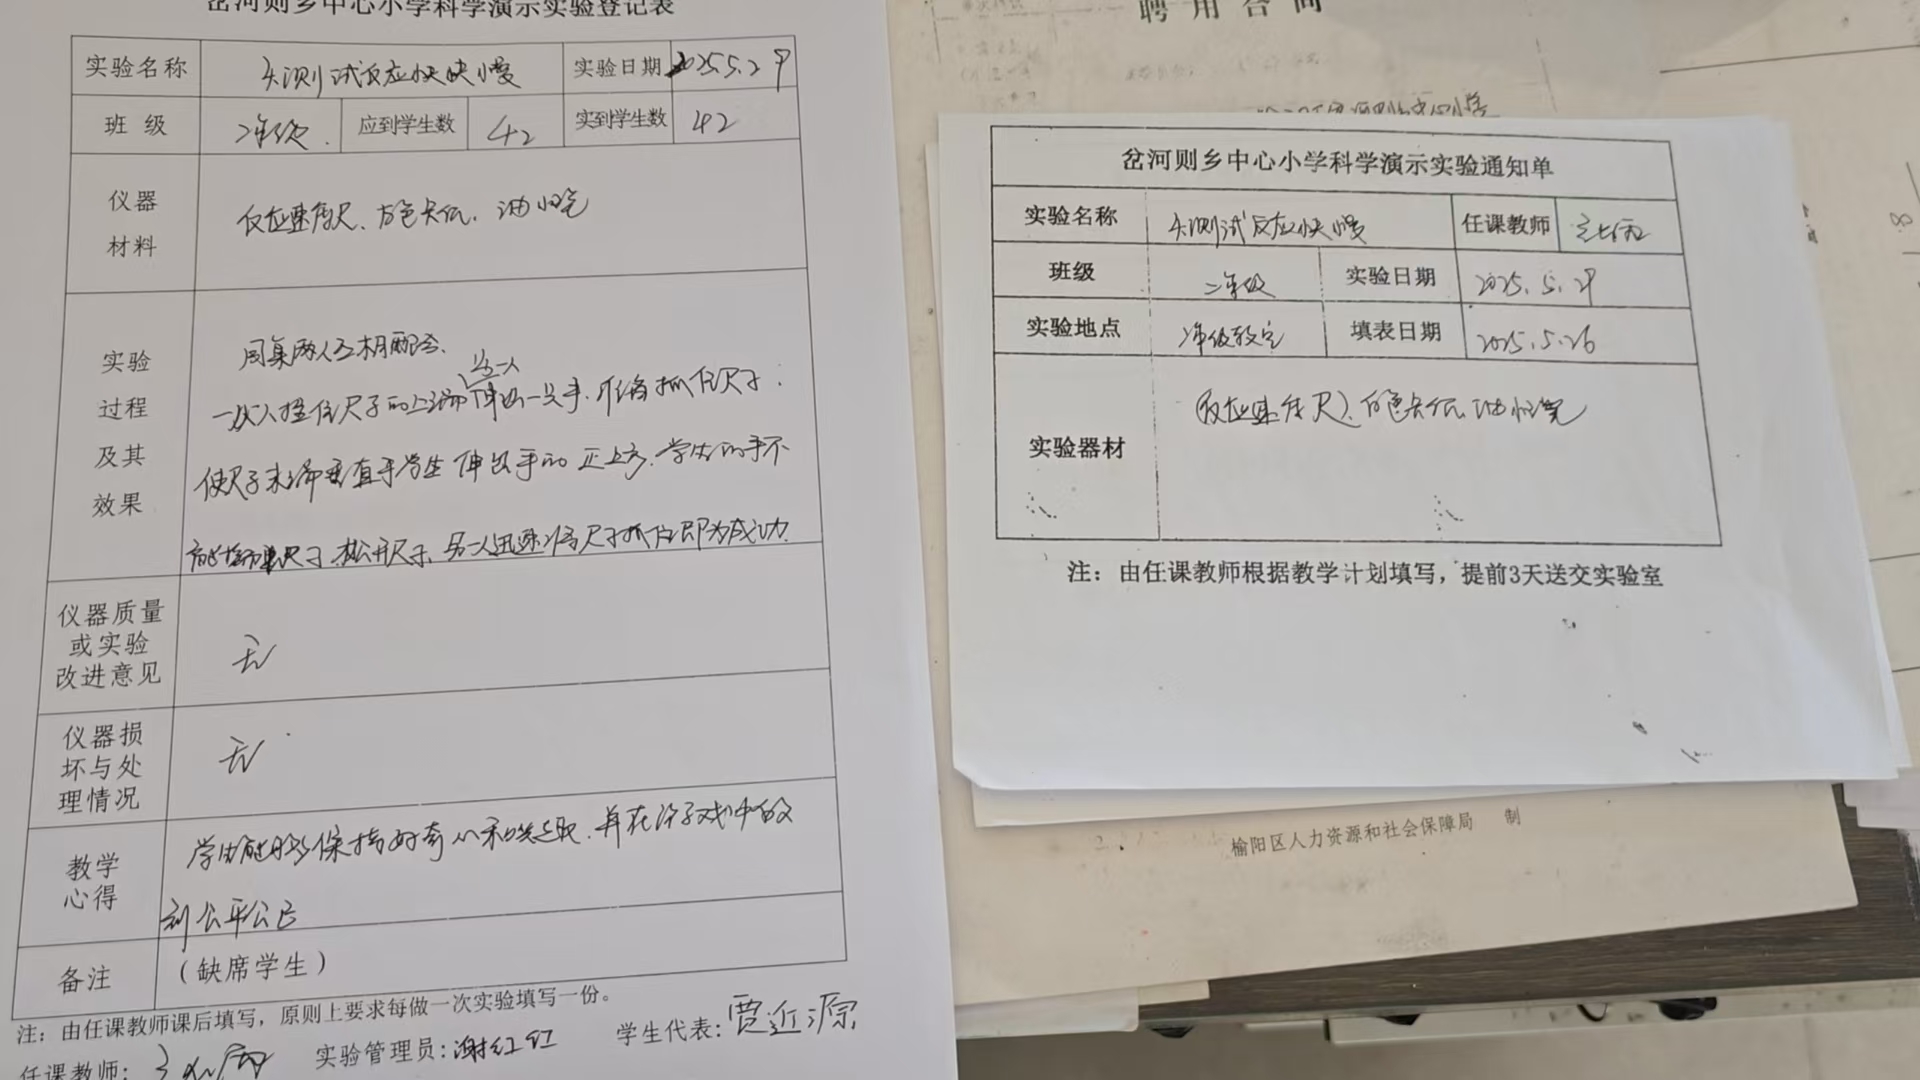 岔河则乡中心小学科学演示实验登记表
实验名称 测试反应快慢 实验日期 2025.5.29
班 级 二年级. 应到学生数 42 实到学生数 42
仪器
材料
反应速度尺、白色卡纸、油性笔
实验
过程
及其
效果
同桌两人互相配合.
另一人
一人捏住尺子的上端伸出一只手.准备抓住尺子.
使尺子末端垂直于学生伸出手的正上方.学生的手不
能接触尺子.松开尺子.另一人迅速将尺子抓住即为成功.
仪器质量
或实验
改进意见
无
仪器损
坏与处
理情况
无
教学
心得
学生能够保持好奇心和兴趣.并在游戏中做
到公平公正
备注
(缺席学生)
注：由任课教师课后填写，原则上要求每做一次实验填写一份。
任课教师: 实验管理员:谢红红 学生代表:贾近源
聘 用 合 同
岔河则乡中心小学科学演示实验通知单
实验名称 测试反应快慢 任课教师
班级 二年级 实验日期 2025.5.29
实验地点 二年级教室 填表日期 2025.5.26
实验器材 反应速度尺、白色卡纸、油性笔
注：由任课教师根据教学计划填写，提前3天送交实验室
榆阳区人力资源和社会保障局 制